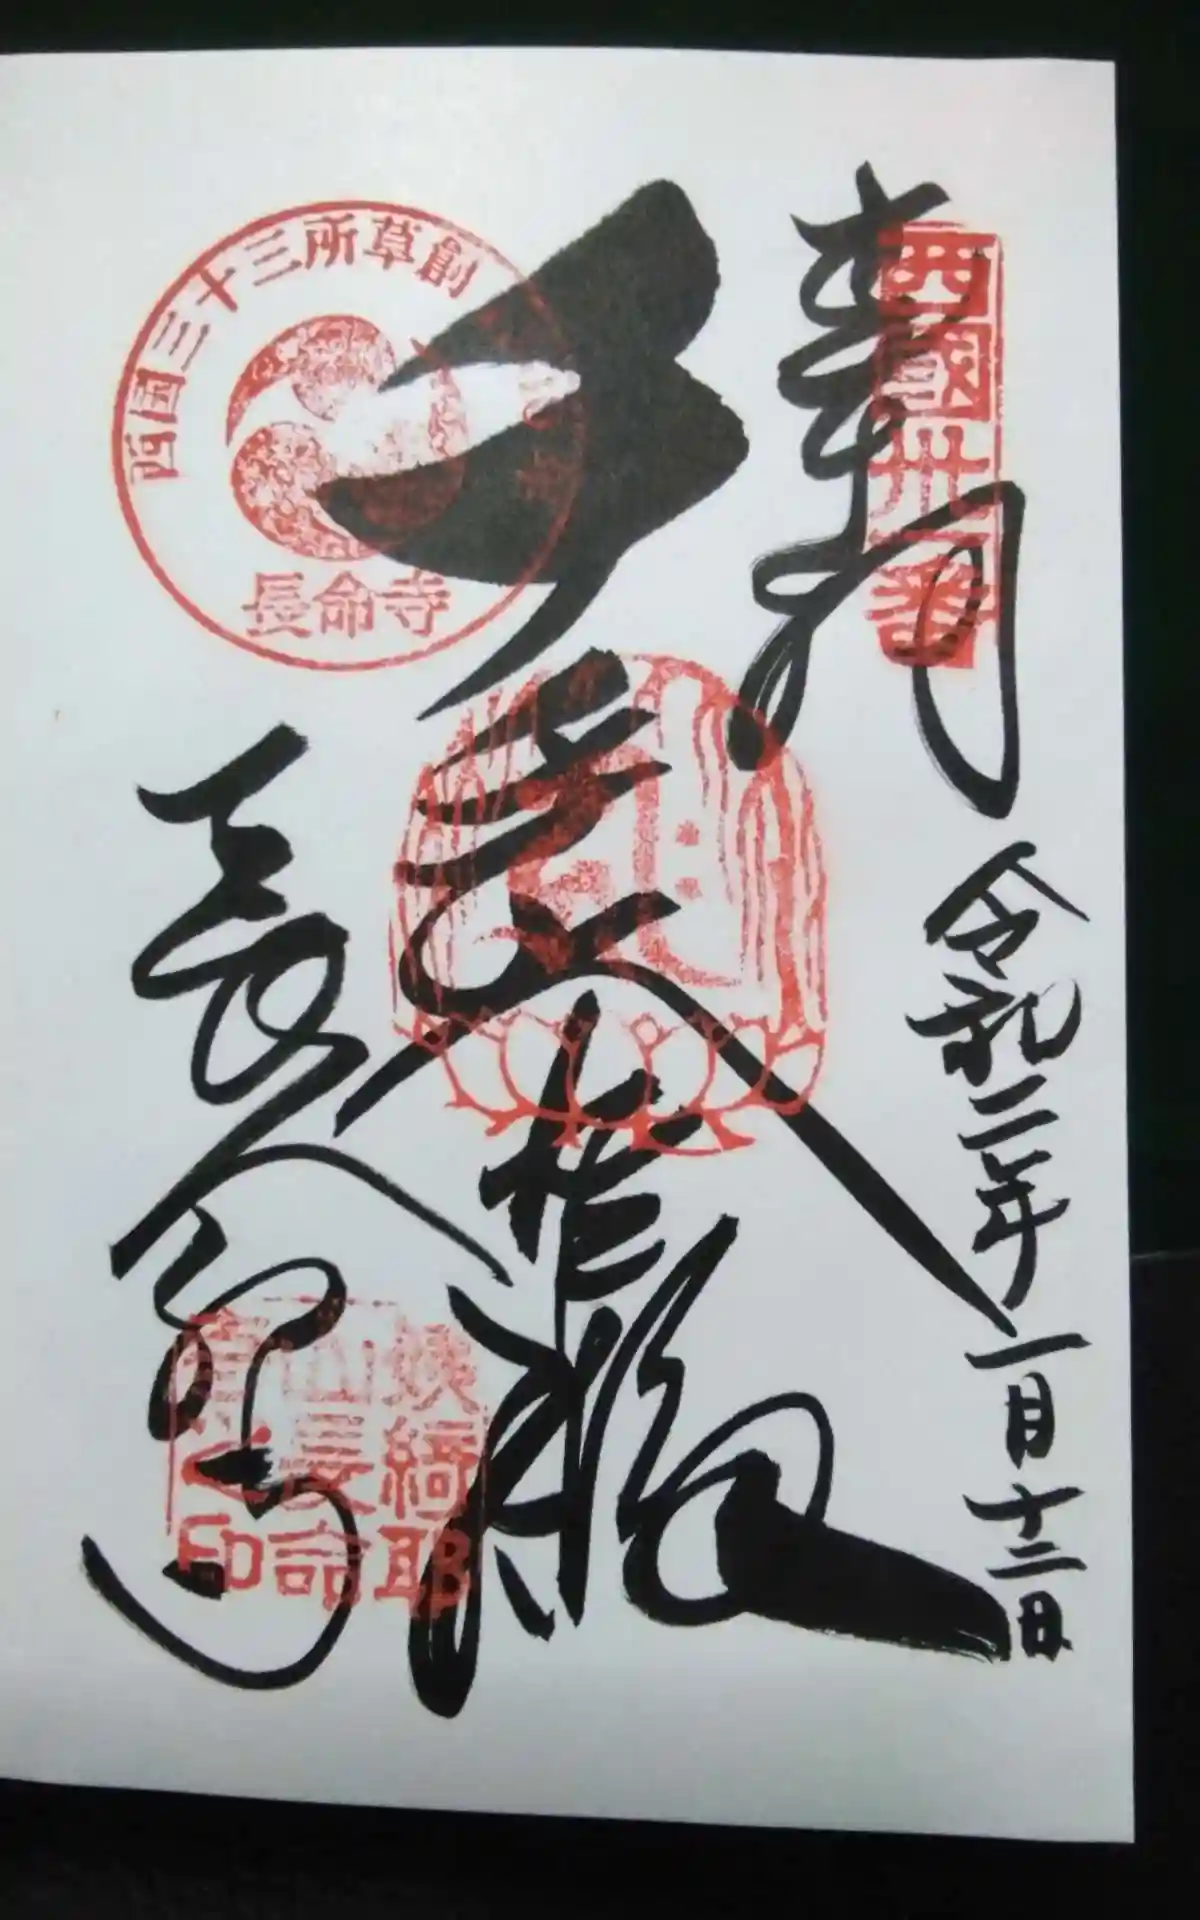 奉拝
西國卅一番
令和二年一月十二日
西国三十三所草創
長命寺
長命寺
姨綺耶
山長命
寺之印